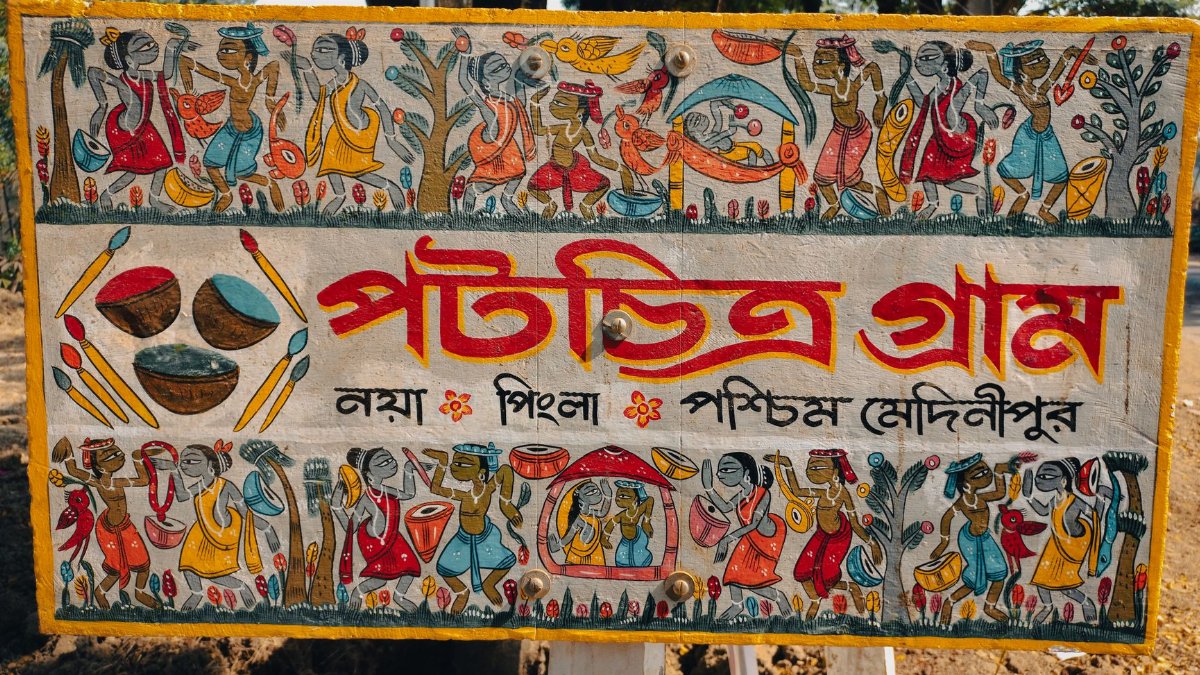 পটচিত্র গ্রাম
নয়া পিংলা পশ্চিম মেদিনীপুর